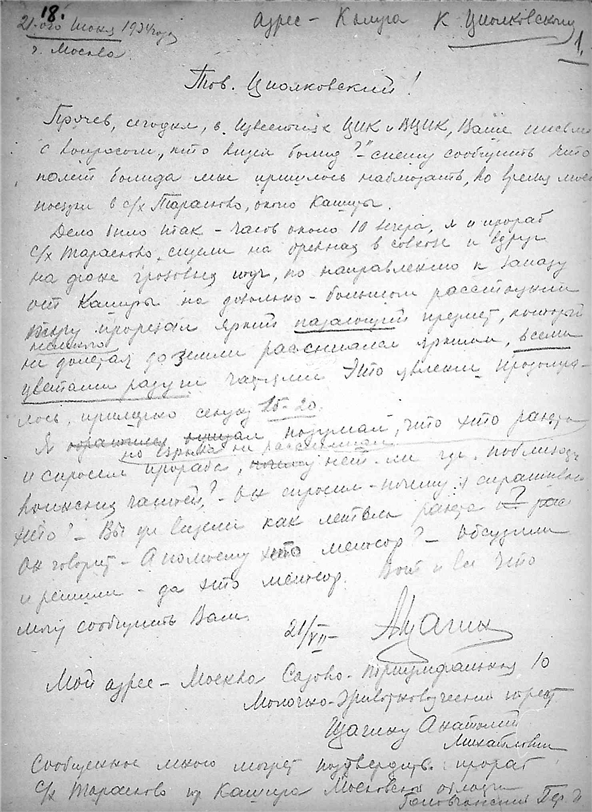 18.
21-ого июня 1934 года
г. Москва
Адрес - Калуга К. Циолковскому
1.
Тов. Циолковский!
Прочев, сегодня, в Известиях ЦИК и ВЦИК, Ваше письмо
с вопросом, "кто видел болид?" - спешу сообщить что
полёт болида мне пришлось наблюдать, во время моей
поездки в с/х Тарасково, около Каширы.
Дело было так - часов около 10 вечера, я и прораб
с/х Тарасково, сидели на бревнах в совхозе и вдруг
на фоне грозовых туч, по направлению к западу
от Каширы на довольно - большом расстоянии
прорезал яркий падающий предмет, который
не долетая до земли рассыпался яркими, всеми
цветами радуги частями. Это явление продолжа-
лось, примерно секунд 15-20.
Я подумал, что это ракета
но взрыва не расслышал
и спросил прораба, нет-ли где, поблизости
воинских частей? - Он спросил - почему я спрашиваю
это? - Вы не видели как летела ракета
Он говорит - А помоему это метеор? - Обсудили
и решили - да это метеор. Вот и все что
могу сообщить Вам.
21/VII- АЩагин
Мой адрес - Москва Садово-Триумфальная 10
Молочно-Животноводческий трест
Щагину Анатолий
Михайлович
Сообщенное мною может подтвердить прораб
с/х Тарасково из Каширы Московской области